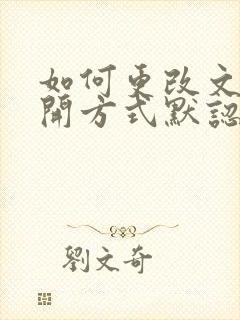 如何更改文
開方式默認
劉文奇